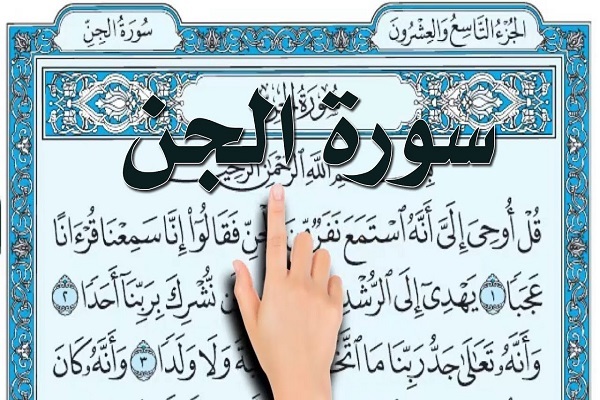 الجُزْءُ التَّاسِعُ وَالْعِشْرُونَ
سُورَةُ الجِنِّ
سورة الجن
اللَّهِ الرَّحْمَٰنِ الرَّحِيمِ
قُلْ أُوحِىَ إِلَىَّ أَنَّهُ ٱسْتَمَعَ نَفَرٌ مِّنَ فَقَالُوٓا۟ إِنَّا سَمِعْنَا قُرْءَانًا
عَجَبًا ١ يَهْدِىٓ إِلَى ٱلرُّشْدِ نُّشْرِكَ بِرَبِّنَآ أَحَدًا ٢
وَأَنَّهُۥ تَعَـٰلَىٰ جَدُّ رَبِّنَا مَا وَلَا وَلَدًا ٣ وَأَنَّهُۥ كَانَ